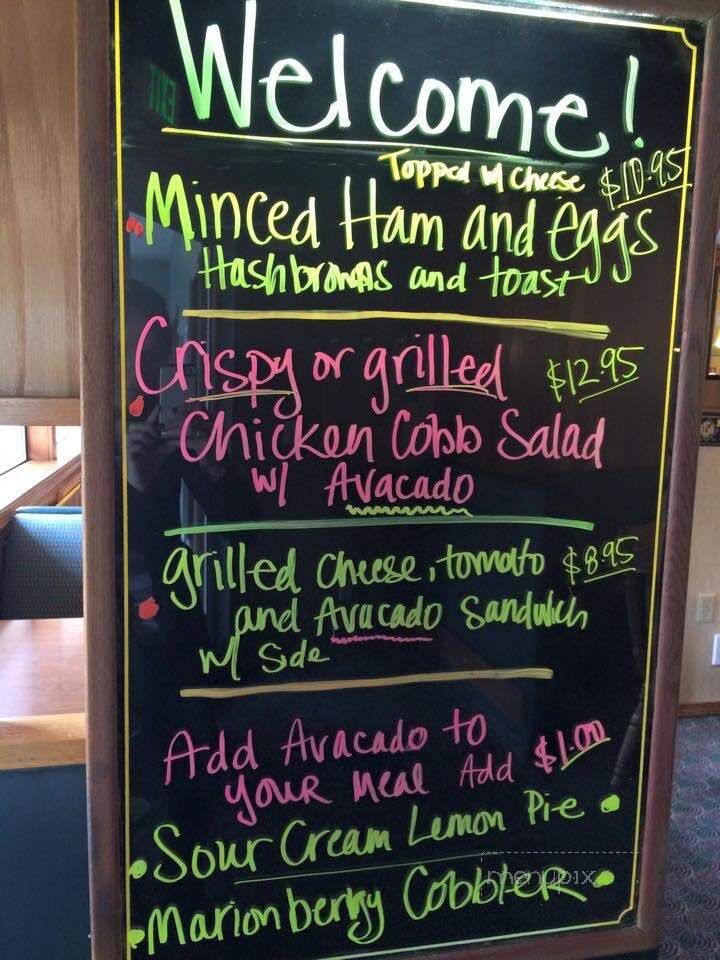 Welcome!
EXIT
Topped w/ Cheese $10.95
Minced Ham and eggs
Hashbrowns and toast
Crispy or grilled $12.95
Chicken Cobb Salad
w/ Avacado
grilled cheese, tomato $8.95
and Avacado Sandwich
w/ Side
Add Avacado to
your meal Add $1.00
• Sour Cream Lemon Pie •
• Marionberry CobblER •
menupix